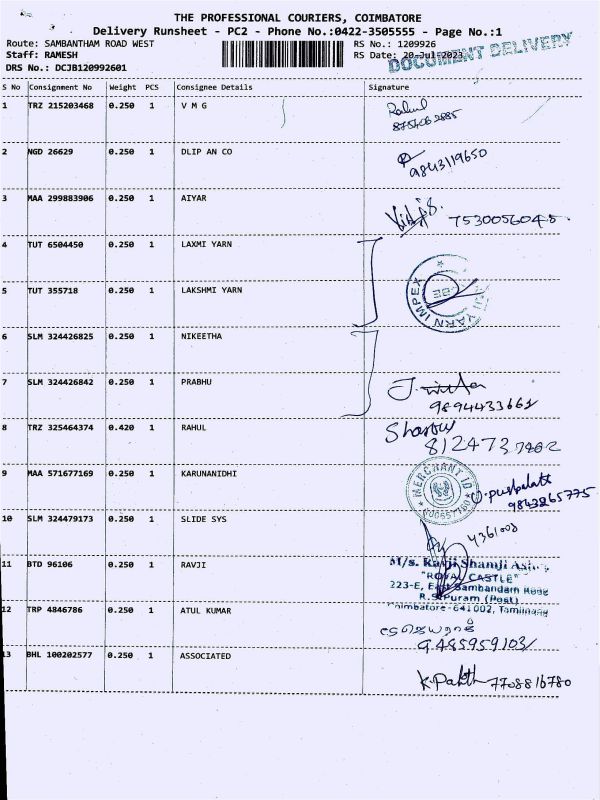 THE PROFESSIONAL COURIERS, COIMBATORE
Delivery Runsheet - PC2 - Phone No.:0422-3505555 - Page No.:1
Route: SAMBANTHAM ROAD WEST
RS No.: 1209926
Staff: RAMESH
RS Date: 20-Jul-2023
DOCUMENT DELIVERY
DRS No.: DCJB120992601
S No Consignment No Weight PCS Consignee Details Signature
1 TRZ 215203468 0.250 1 V M G Rahul
8754062885
2 NGD 26629 0.250 1 DLIP AN CO
9843119650
3 MAA 299883906 0.250 1 AIYAR
7530056048
4 TUT 6504450 0.250 1 LAXMI YARN
YARN IMPEX
5 TUT 355718 0.250 1 LAKSHMI YARN
6 SLM 324426825 0.250 1 NIKEETHA
7 SLM 324426842 0.250 1 PRABHU
9894433661
8 TRZ 325464374 0.420 1 RAHUL
812473 7402
9 MAA 571677169 0.250 1 KARUNANIDHI
MERCHANT
9843265775
10 SLM 324479173 0.250 1 SLIDE SYS
4361003
11 BTD 96106 0.250 1 RAVJI
M/s. Ravji Shamji
"ROYAL CASTLE"
223-E, East Sambandam Road
R.S.Puram (Post)
Coimbatore-641002, Tamilnadu
12 TRP 4846786 0.250 1 ATUL KUMAR
9485959103
13 BHL 100202577 0.250 1 ASSOCIATED
7708816780